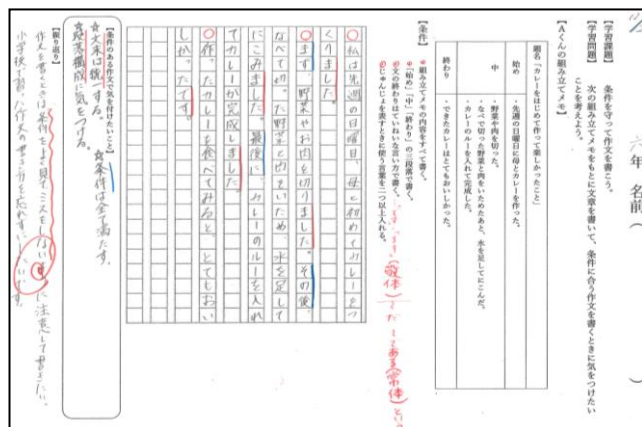 六年 名前(
【学習課題】 条件を守って作文を書こう。
【学習問題】 次の組み立てメモをもとに文章を書いて、条件に合う作文を書くときに気をつけたい
ことを考えよう。
【Aくんの組み立てメモ】
題名「カレーをはじめて作って楽しかったこと」
始め
・先週の日曜日に母とカレーを作った。
中
・野菜や肉を切った。
・なべで切った野菜と肉をいためたあと、水を足してにこんだ。
・カレーのルーを入れて完成した。
終わり
・できたカレーはとてもおいしかった。
【条件】
組み立てメモの内容をすべて書く。
「始め」「中」「終わり」の三段落で書く。
文の終わりはていねいな言い方で書く。
じゅんじょを表すときに使う言葉を二つ以上入れる。
(敬体)
(常体)
私は先週の日曜日、母と初めてカレーをつ
くりました。
まず、野菜やお肉を切りました。その後、
なべで切った野菜と肉をいため、水を足して
にこみました。最後に、カレーのルーを入れ
てカレーが完成しました。
作ったカレーを食べてみると、とてもおい
しかったです。
【条件のある作文で気を付けたいこと】
☆文末は統一する。 ☆条件は全て満たす。
☆段落構成に気をつける。
【振り返り】
作文を書くときは条件をよく見てミスをしないように注意して書きたい。
小学校で習った作文の書き方を忘れずにしたいです。